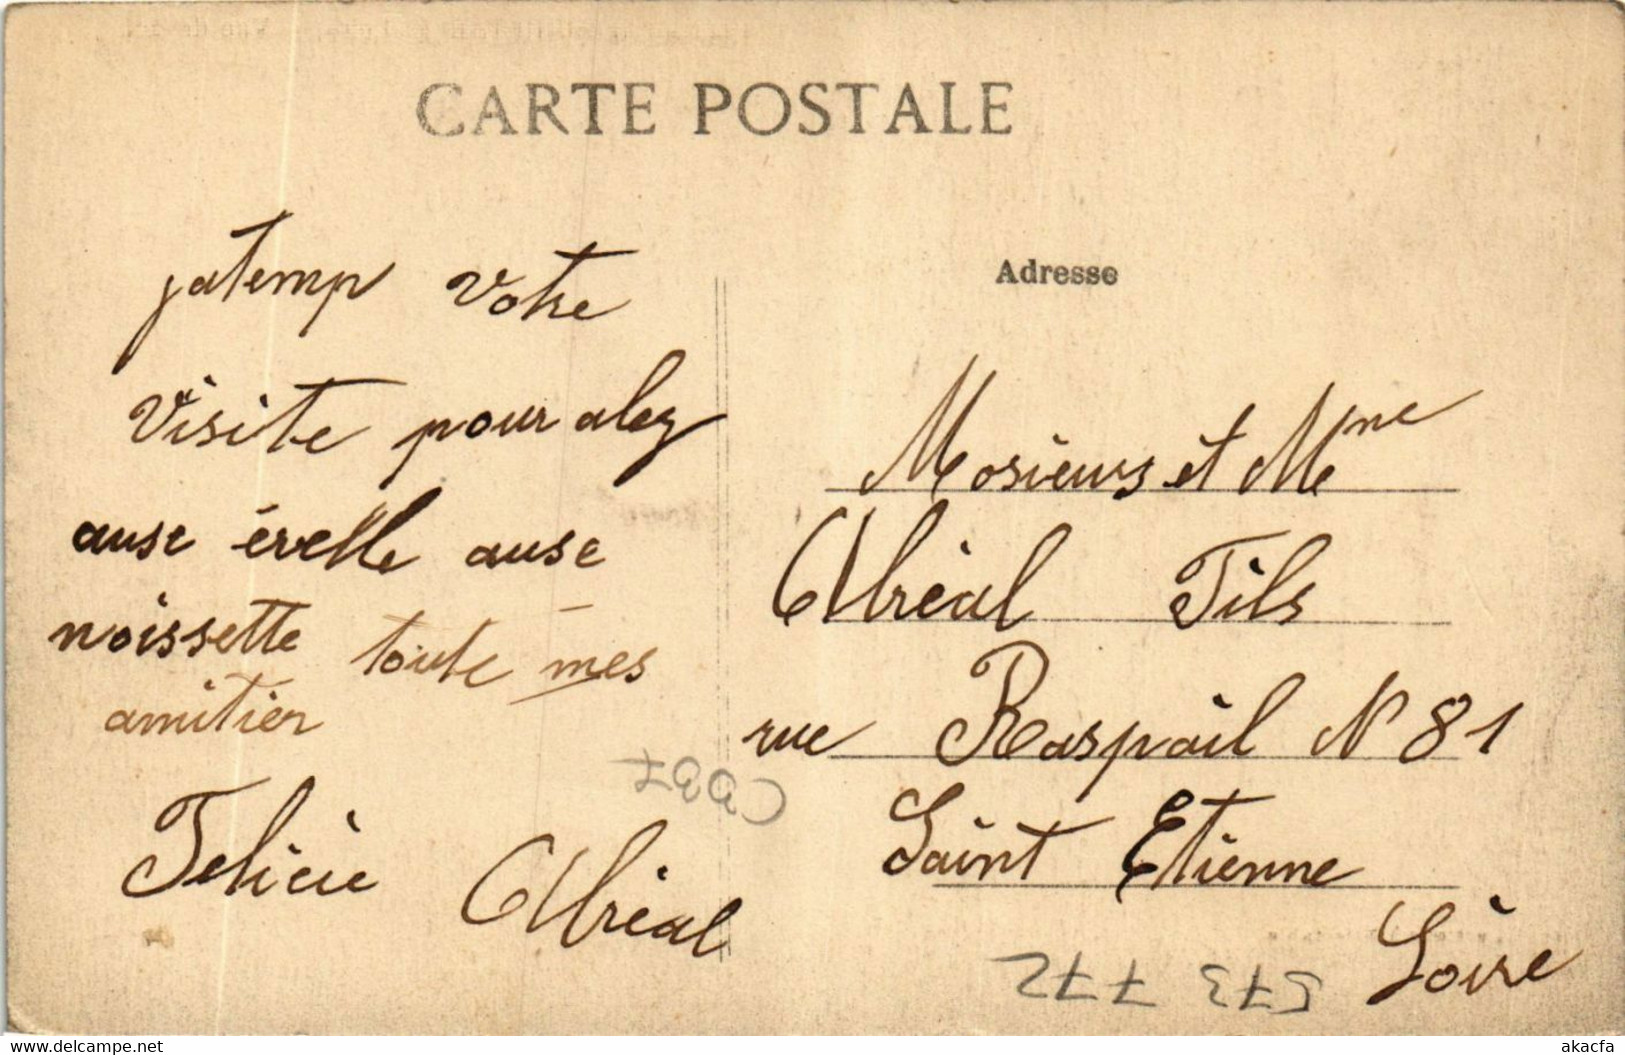 CARTE POSTALE
jatemp votre
visite pour alez
ause évelle ause
noissette toute mes
amitier
Felicie Abréal
Adresse
Mosieurs et Mme
Abréal Fils
rue Raspail N 81
Saint Etienne
Loire
CD37
573 772
www.delcampe.net
akacfa